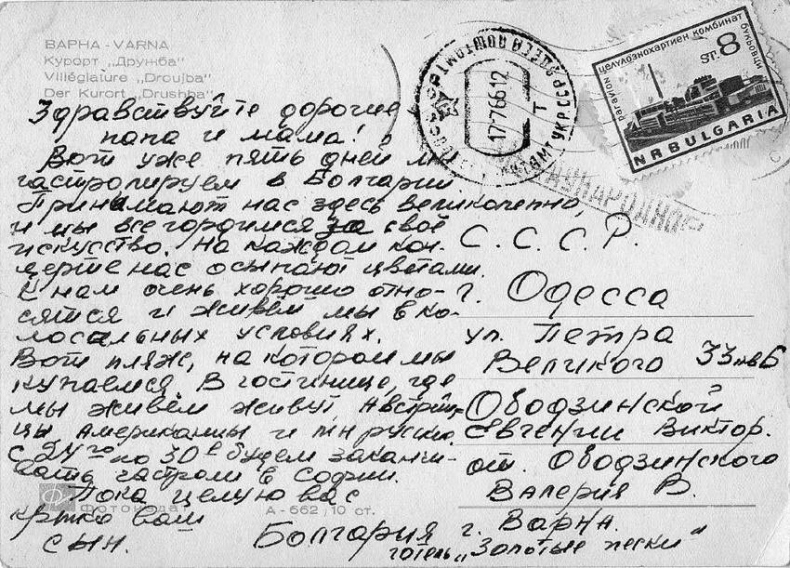 ВАРНА - VARNA
Курорт „Дружба"
Villégiature „Droujba"
Der Kurort „Drushba"
Здравствуйте дорогие
папа и мама!
Вот уже пять дней мы
гастролируем в Болгарии
Принимают нас здесь великолепно,
и мы все гордимся за своё
искусство. На каждом кон-
церте нас осыпают цветами.
К нам очень хорошо отно-
сятся и живём мы в ко-
лосальных условиях.
Вот пляж, на котором мы
купаемся. В гостинице, где
мы живём живут, Австрий-
цы американцы и мн русских.
С 24го по 30е будем заканчи-
вать гастроли в Софии.
Пока целую вас
крепко ваш
сын.
Фотоиздат
А - 662 ; 10 ст.
17·7 66 12
ОДЕССА ПОЧТАМТ
УКР ССР
МЕЖДУНАРОДНОЕ
ст. 8
целулознохартиен комбинат
NR BULGARIA
С. С. С. Р.
г. Одесса
ул. Петра
Великого 33 кв 6
Ободзинской
Евгении Виктор.
от. Ободзинского
Валерия В.
Болгария г. Варна.
готель „Золотые пески"